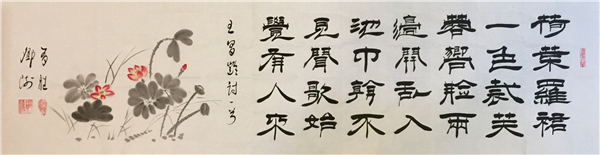 荷葉羅裙
一色裁芙
蓉嚮臉兩
邊開亂入
池中看不
見聞歌始
覺有人來
王昌齡詩一首